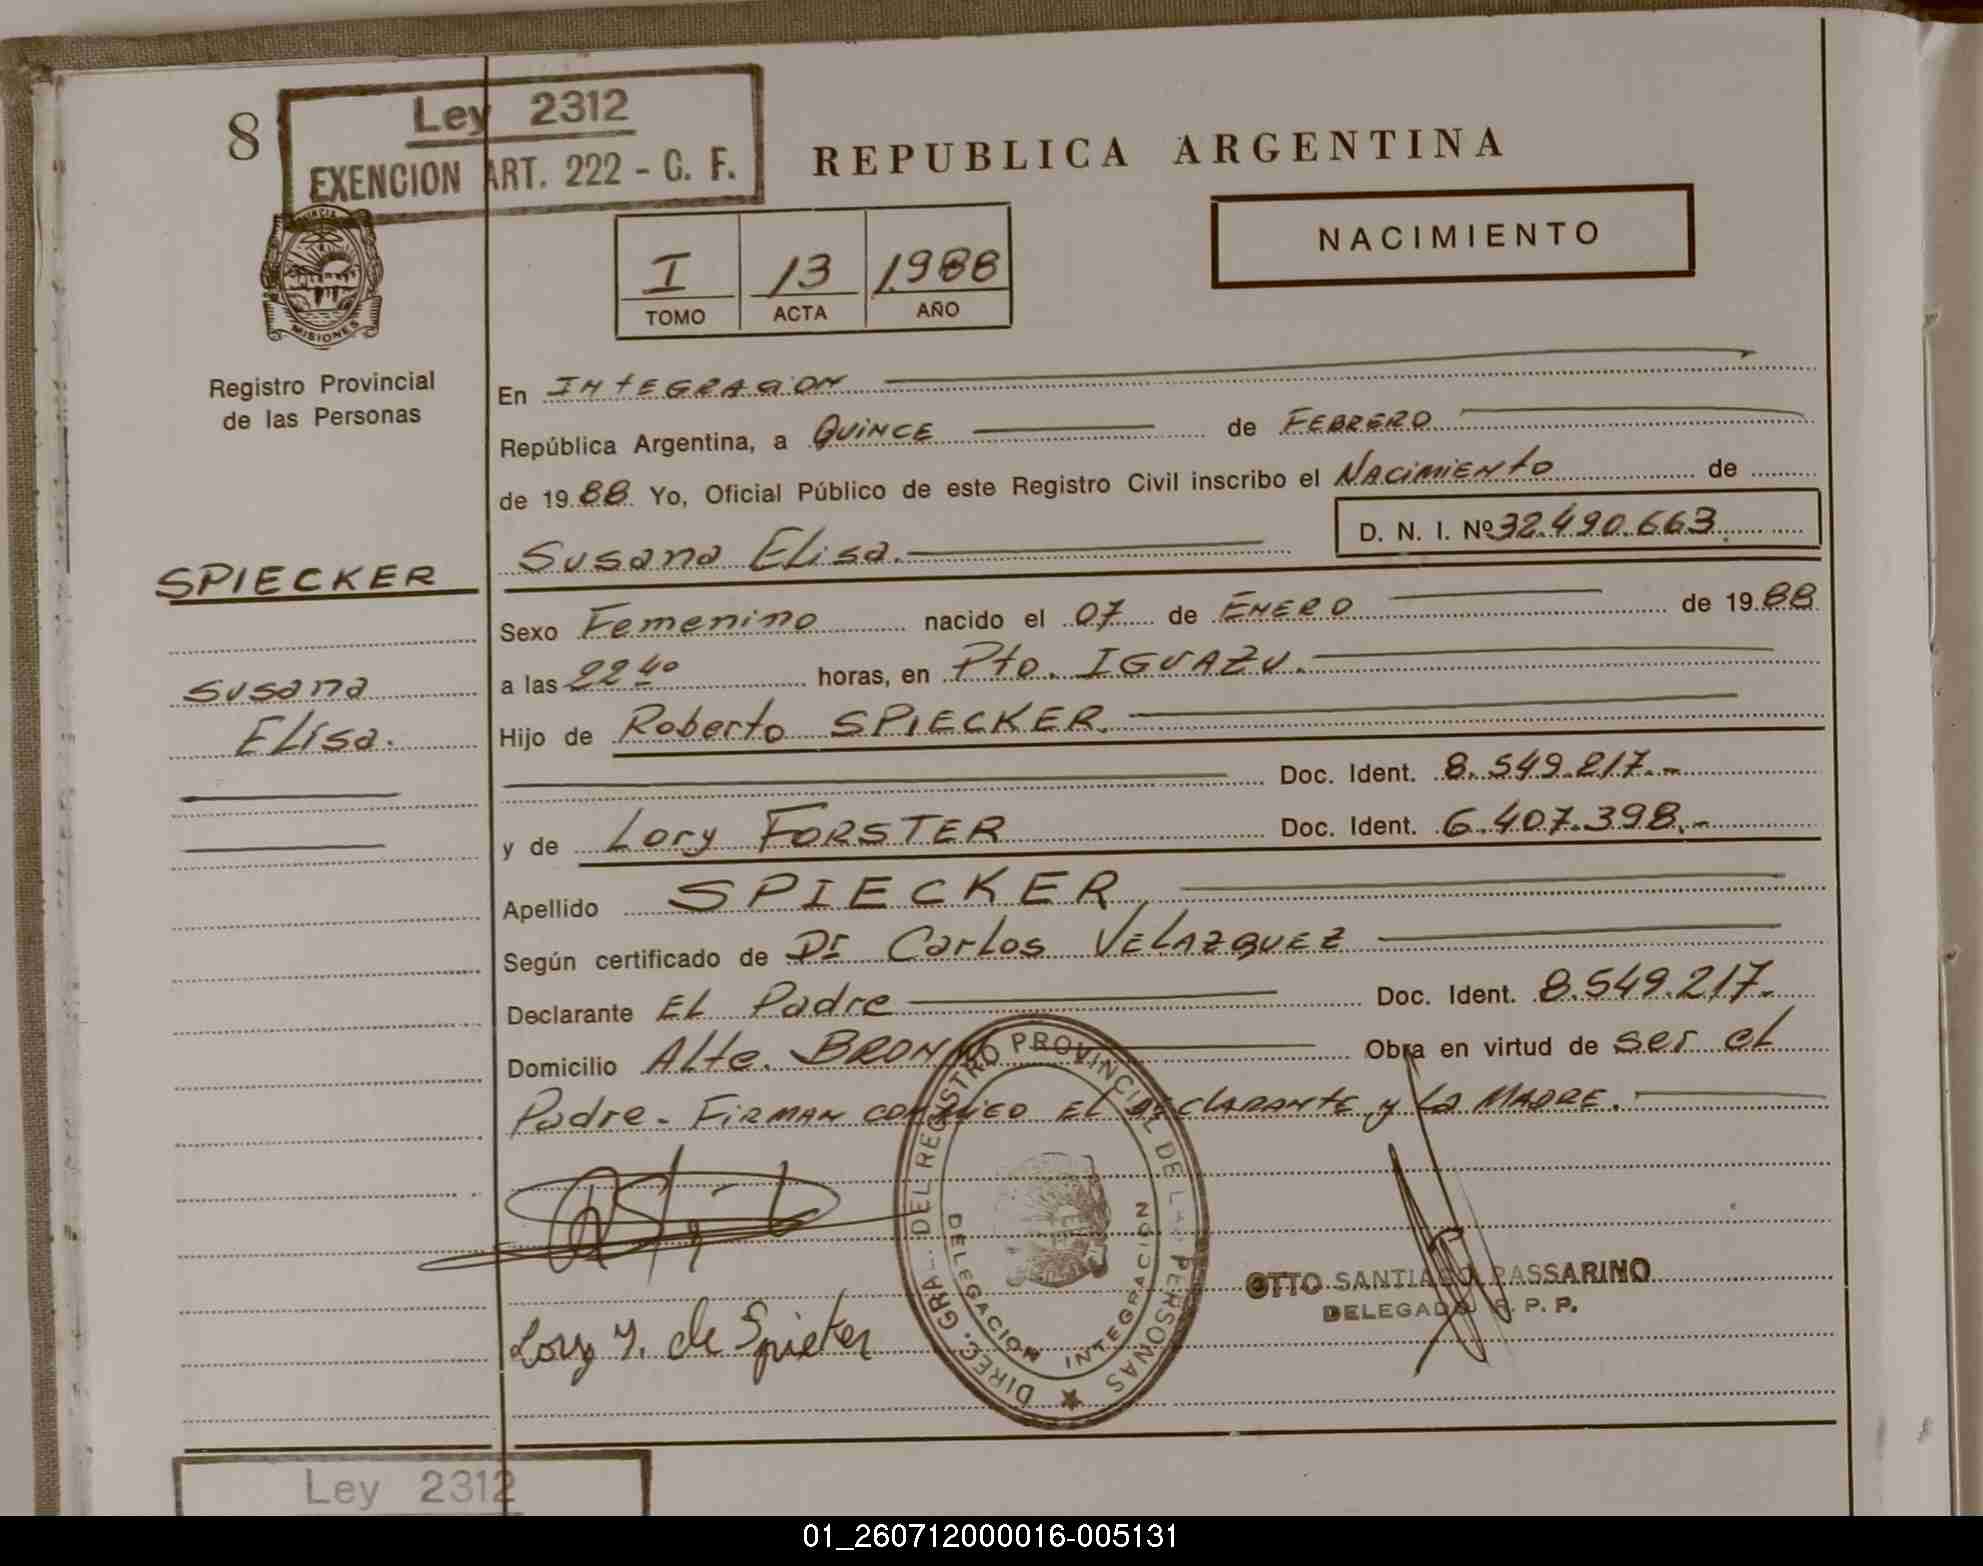 8
Ley 2312
EXENCION ART. 222 - C. F.
REPUBLICA ARGENTINA
NACIMIENTO
I 13 1988
TOMO ACTA AÑO
MISIONES
Registro Provincial
de las Personas
En INTEGRACION
República Argentina, a QUINCE de FEBRERO
de 1988 Yo, Oficial Público de este Registro Civil inscribo el NACIMIENTO de
Susana Elisa. D. N. I. Nº 32.490.663
SPIECKER
Susana
Elisa.
Sexo Femenino nacido el 07 de ENERO de 1988
a las 22 40 horas, en Pto. IGUAZU.
Hijo de Roberto SPIECKER.
Doc. Ident. 8.549.217.-
y de Lory FORSTER Doc. Ident. 6.407.398.-
Apellido SPIECKER
Según certificado de Dr Carlos VELAZQUEZ
Declarante EL Padre Doc. Ident. 8.549.217.
Domicilio Alte. BROWN Obra en virtud de ser el
Padre. FIRMAN CONMIGO EL DECLARANTE y La MADRE.
DIREC. GRAL. DEL REGISTRO PROVINCIAL DE LAS PERSONAS
DELEGACION INTEGRACION
OTTO SANTIAGO PASSARINO
DELEGADO R. P. P.
Lory de Spieker
Ley 2312
01_260712000016-005131